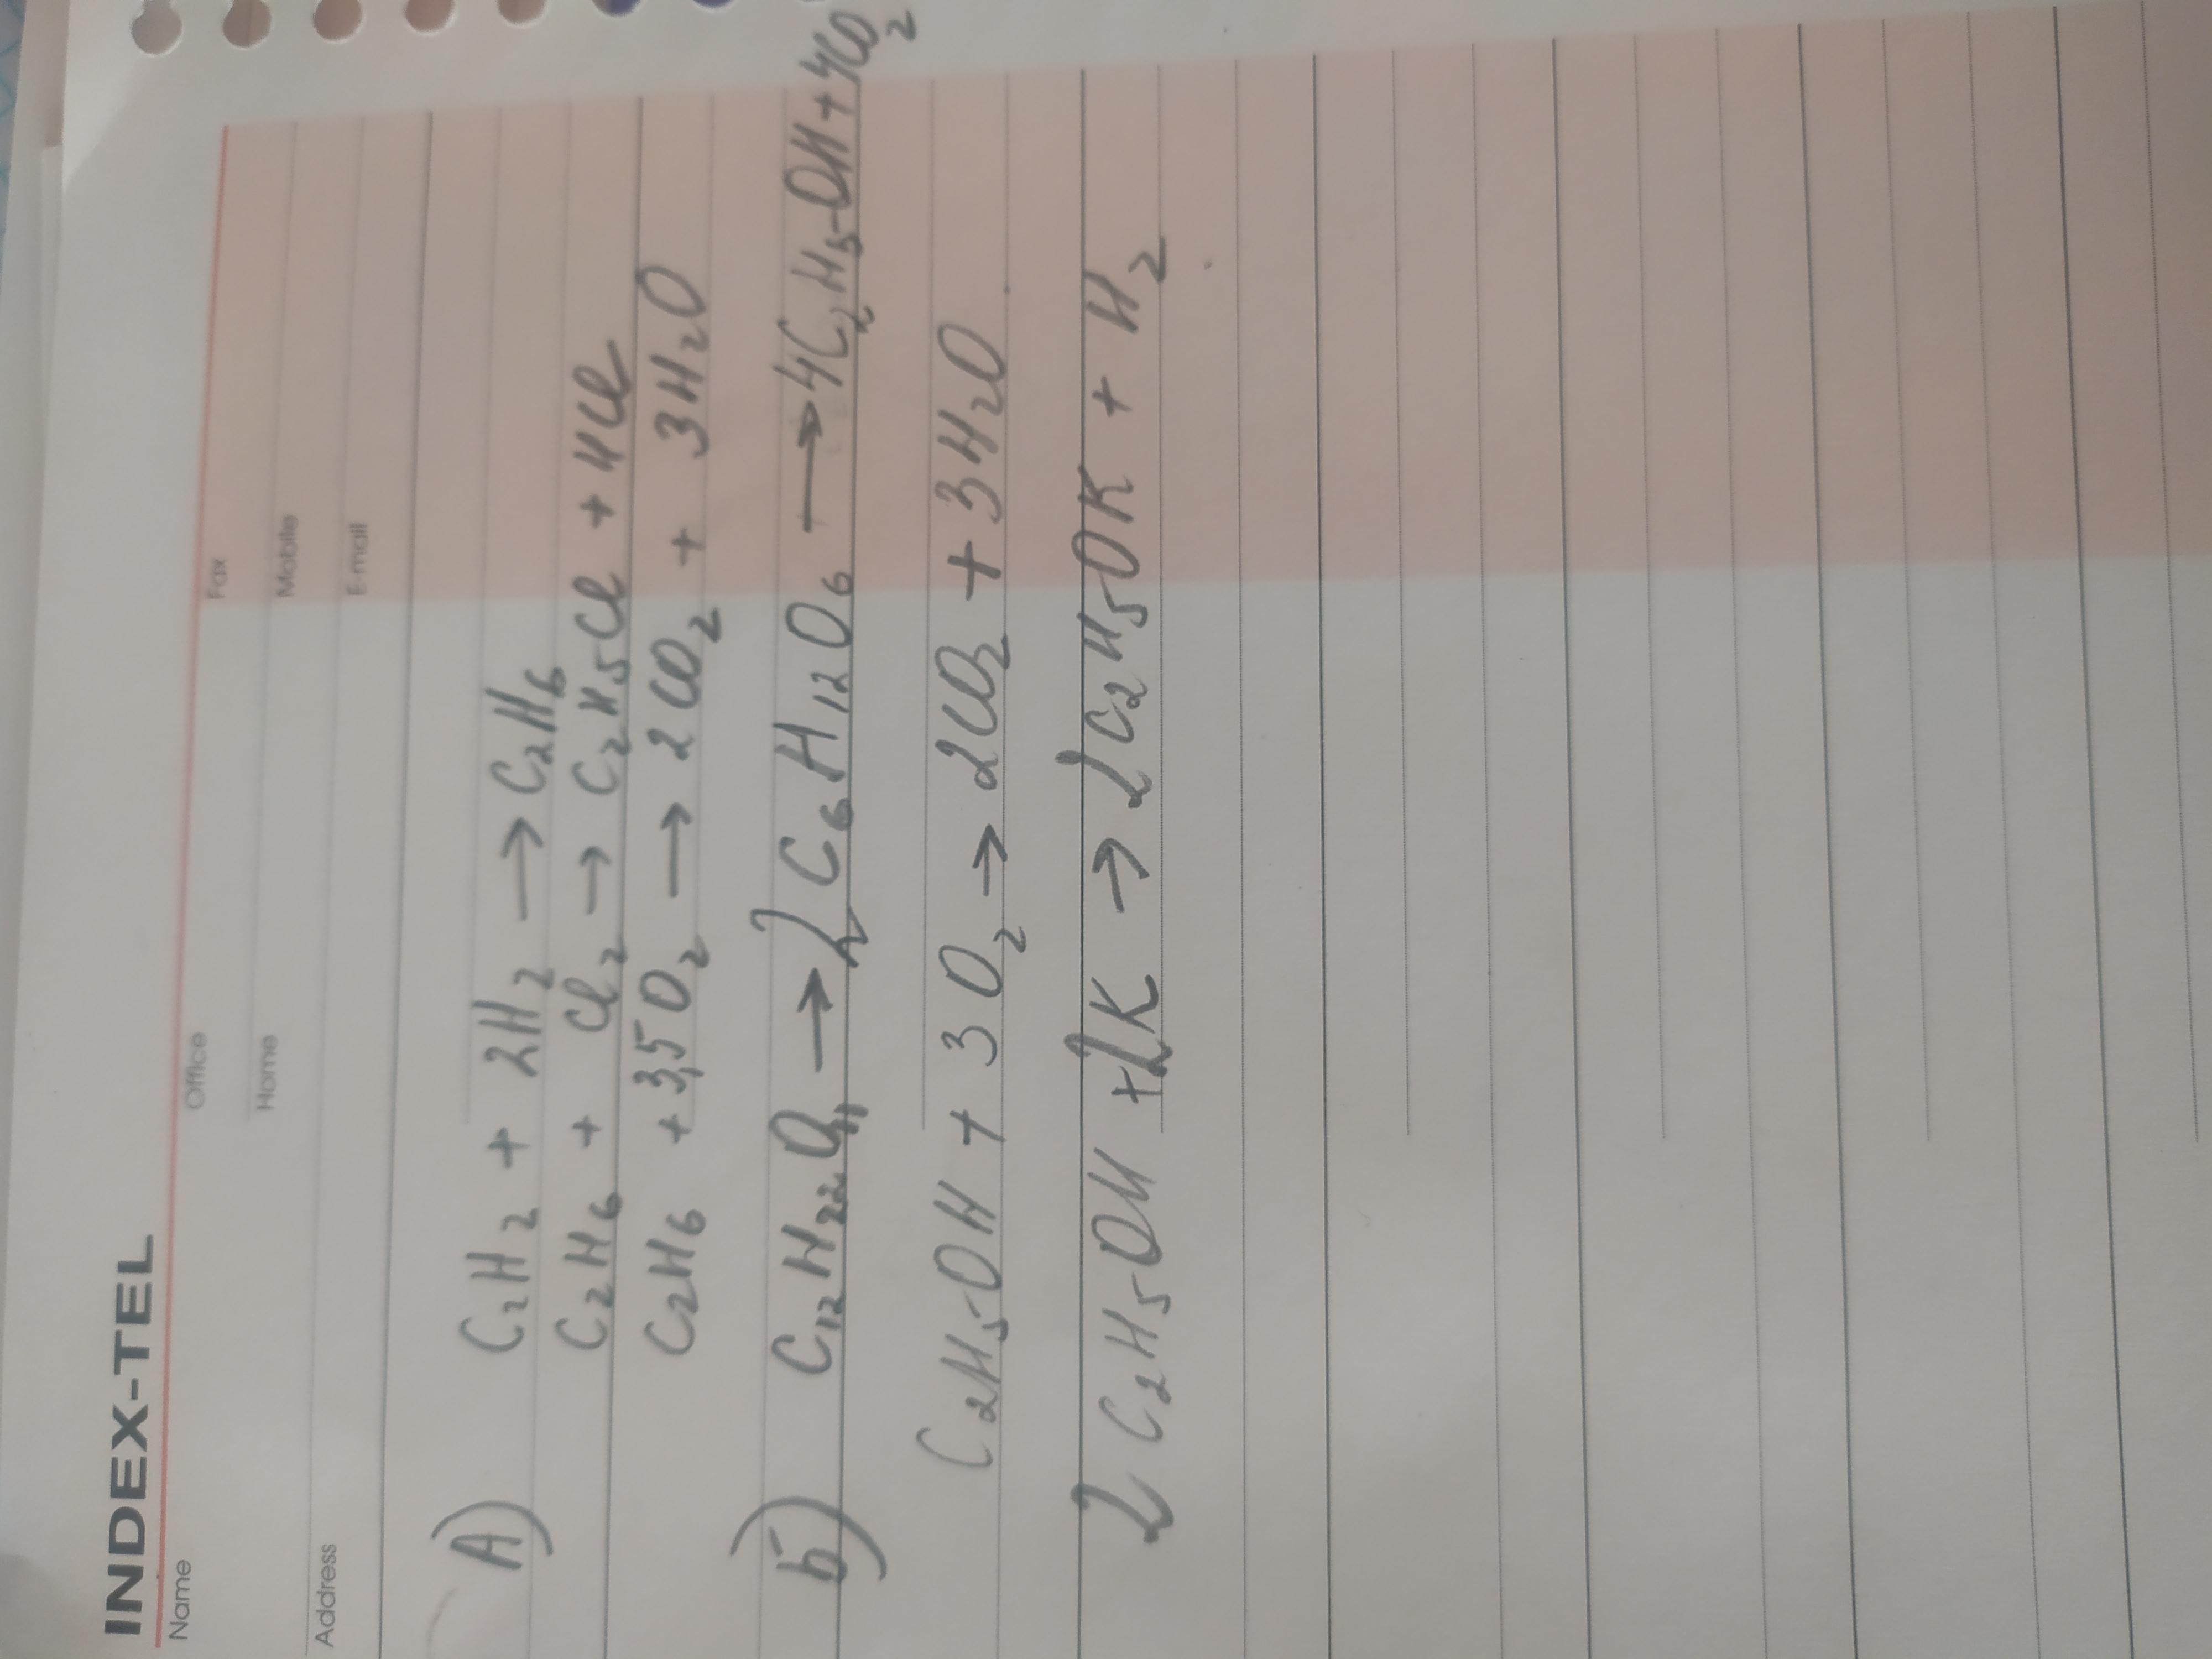 INDEX-TEL
Name Office Fax
Home Mobile
Address E-mail
A) C₂H₂ + 2H₂ → C₂H₆
C₂H₆ + Cl₂ → C₂H₅Cl + HCl
C₂H₆ + 3,5O₂ → 2CO₂ + 3H₂O
Б) C₁₂H₂₂O₁₁ → 2C₆H₁₂O₆ → 4C₂H₅-OH + 4CO₂
C₂H₅-OH + 3O₂ → 2CO₂ + 3H₂O
2C₂H₅OH + 2K → 2C₂H₅OK + H₂